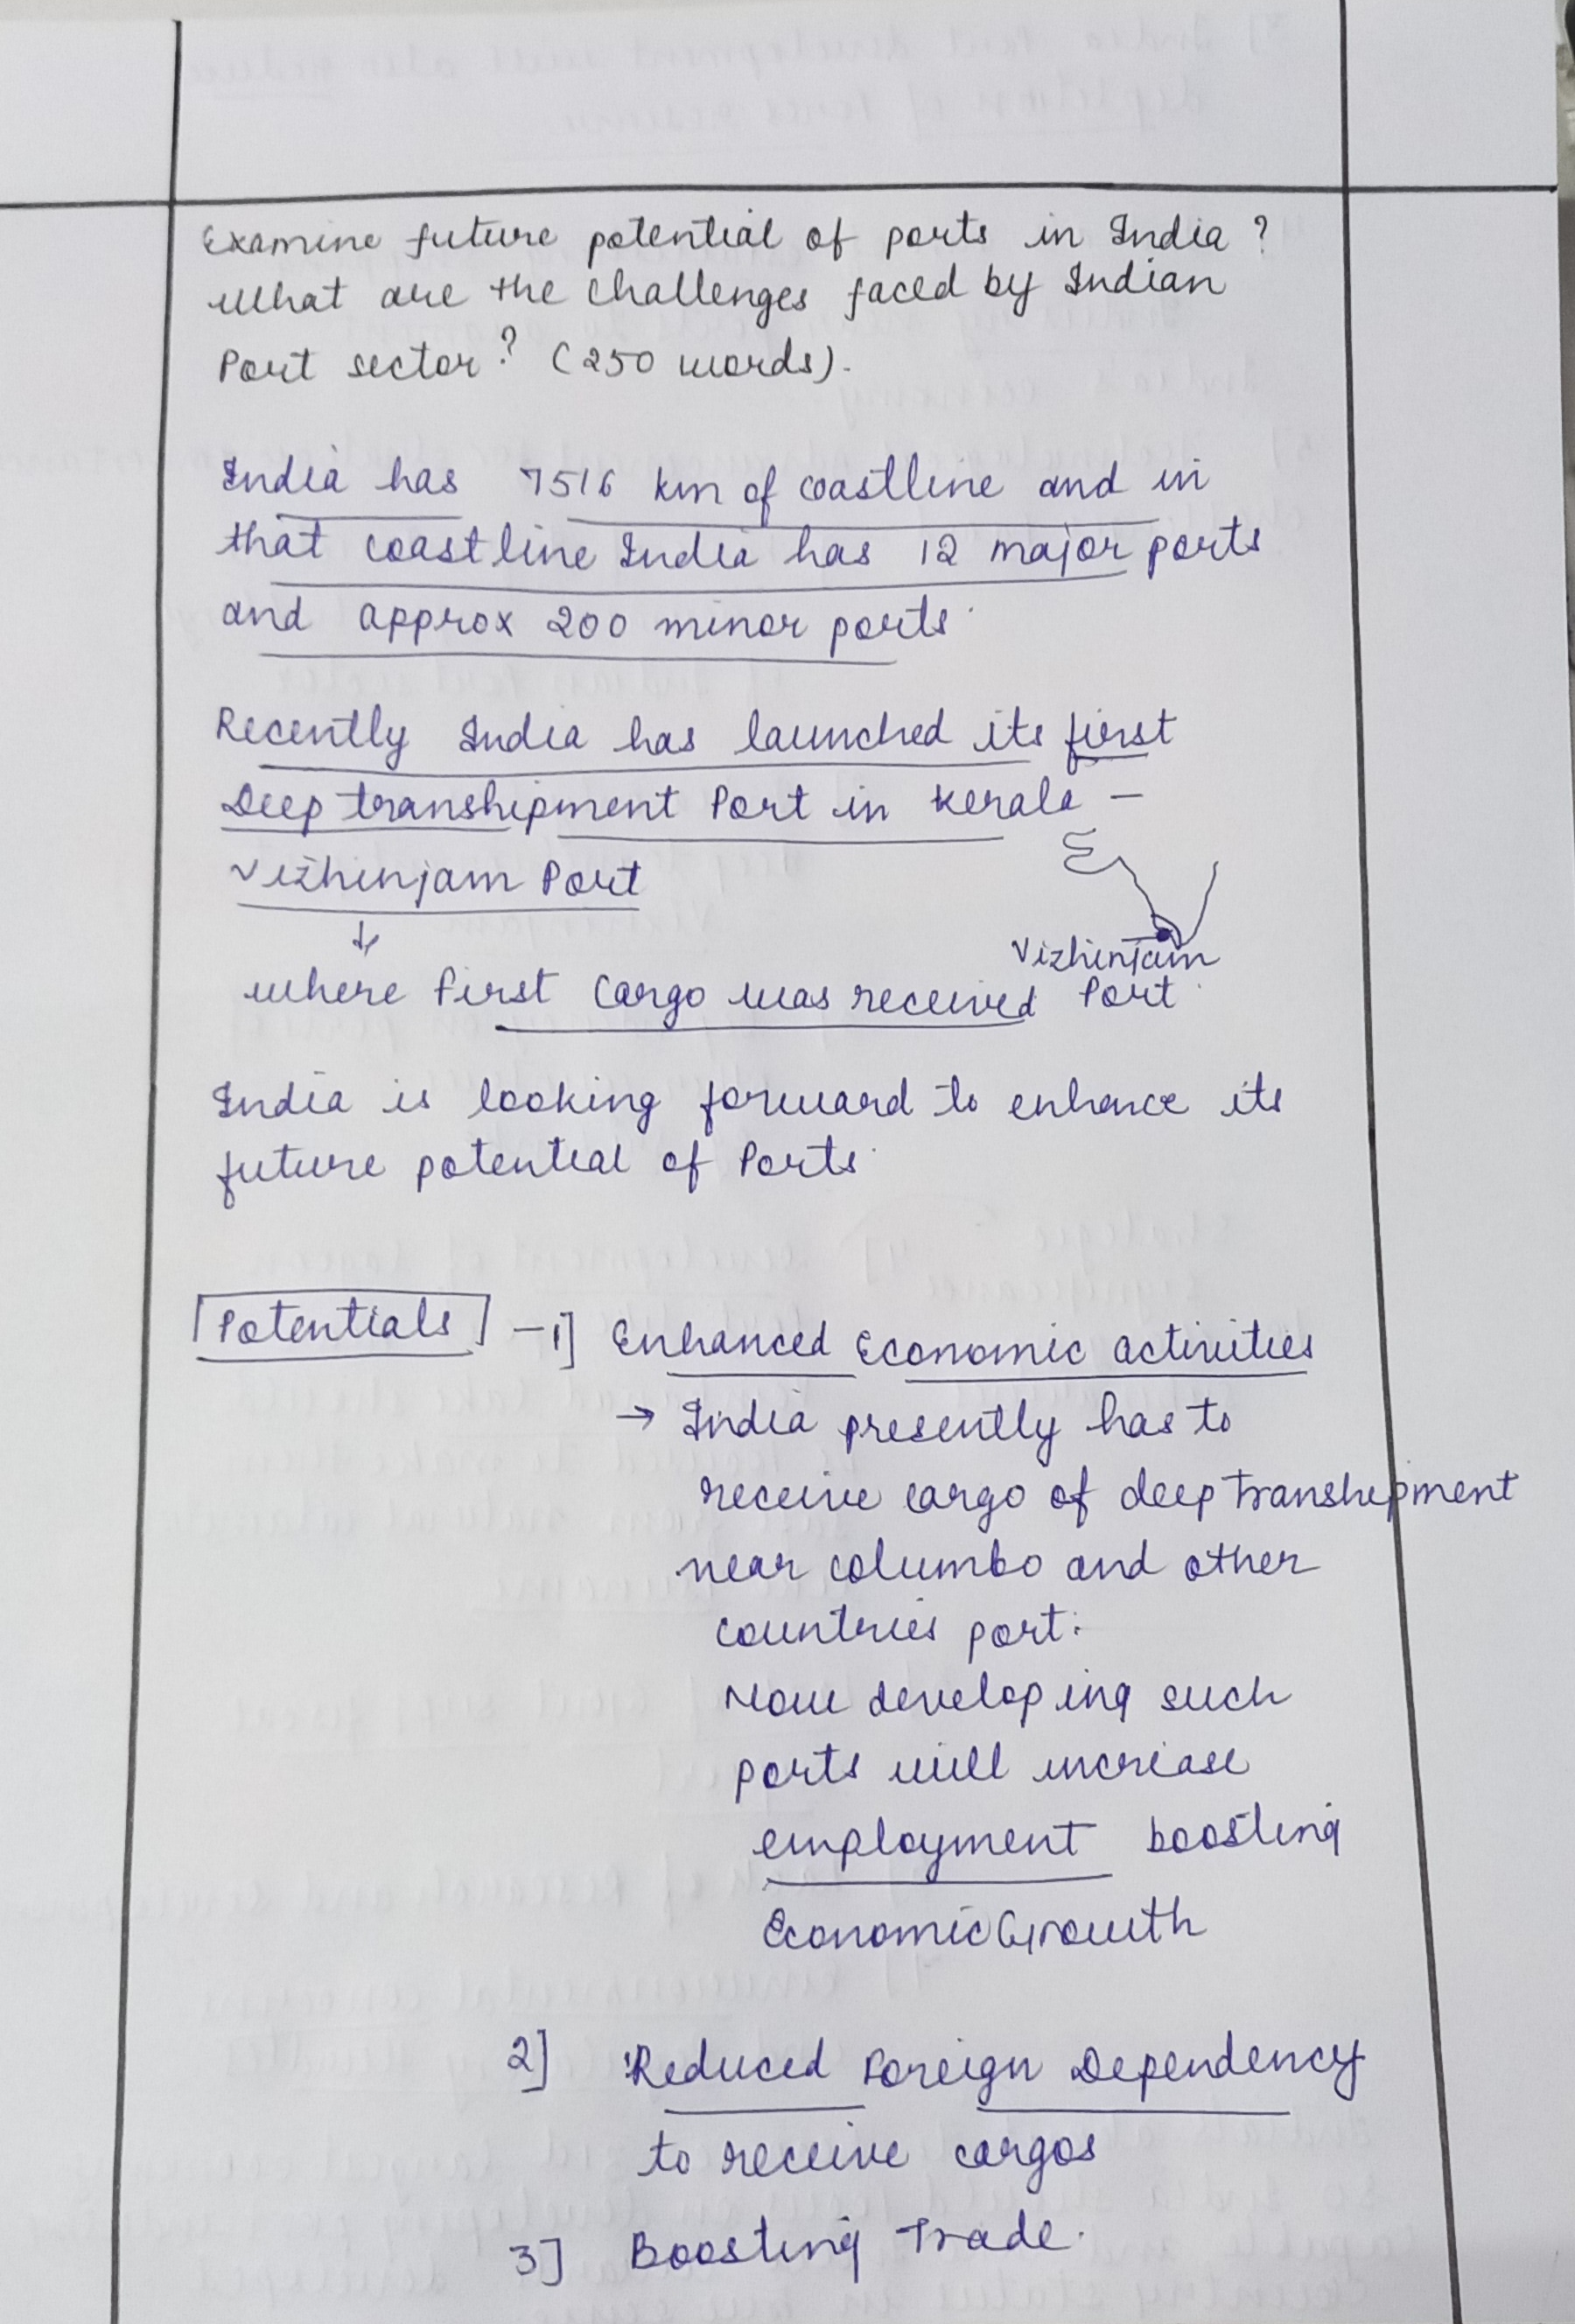 Examine future potential of ports in India ?
What are the challenges faced by Indian
Port sector ? (250 words).
India has 7516 km of coastline and in
that coastline India has 12 major ports
and approx 200 minor ports.
Recently India has launched its first
Deep transhipment Port in Kerala -
Vizhinjam Port
↓
where first Cargo was received
Vizhinjam
Port
India is looking forward to enhance its
future potential of Ports.
Potentials - 1] Enhanced Economic activities
→ India presently has to
receive cargo of deep transhipment
near columbo and other
countries port.
Now developing such
ports will increase
employment boosting
Economic Growth
2] Reduced Foreign Dependency
to receive cargos
3] Boosting Trade.